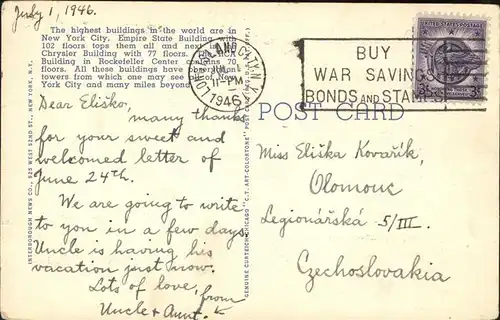 July 1, 1946.
The highest buildings in the world are in
New York City. Empire State Building with
102 floors tops them all and next in
Chrysler Building with 77 floors.
Building in Rockefeller Center contains 70
floors. All these buildings have observation
towers from which one may see
City and many miles beyond
Dear Eliško,
many thanks
for your sweet and
welcomed letter of
June 24th.
We are going to write
to you in a few days
Uncle is having his
vacation just now.
Lots of love,
from
Uncle & Aunt.
INTERBOROUGH NEWS CO., NEW YORK, N.Y.
GENUINE CURTEICH-CHICAGO "C.T. ART-COLORTONE" POST CARD
LONG ISLAND CITY, N.Y.
11-PM
1946
BUY
WAR SAVINGS
BONDS AND STAMPS
UNITED STATES POSTAGE
3¢ 3¢
POST CARD
Miss Eliška Kovařík,
Olomouc
Legionářská 5/III.
Czechoslovakia